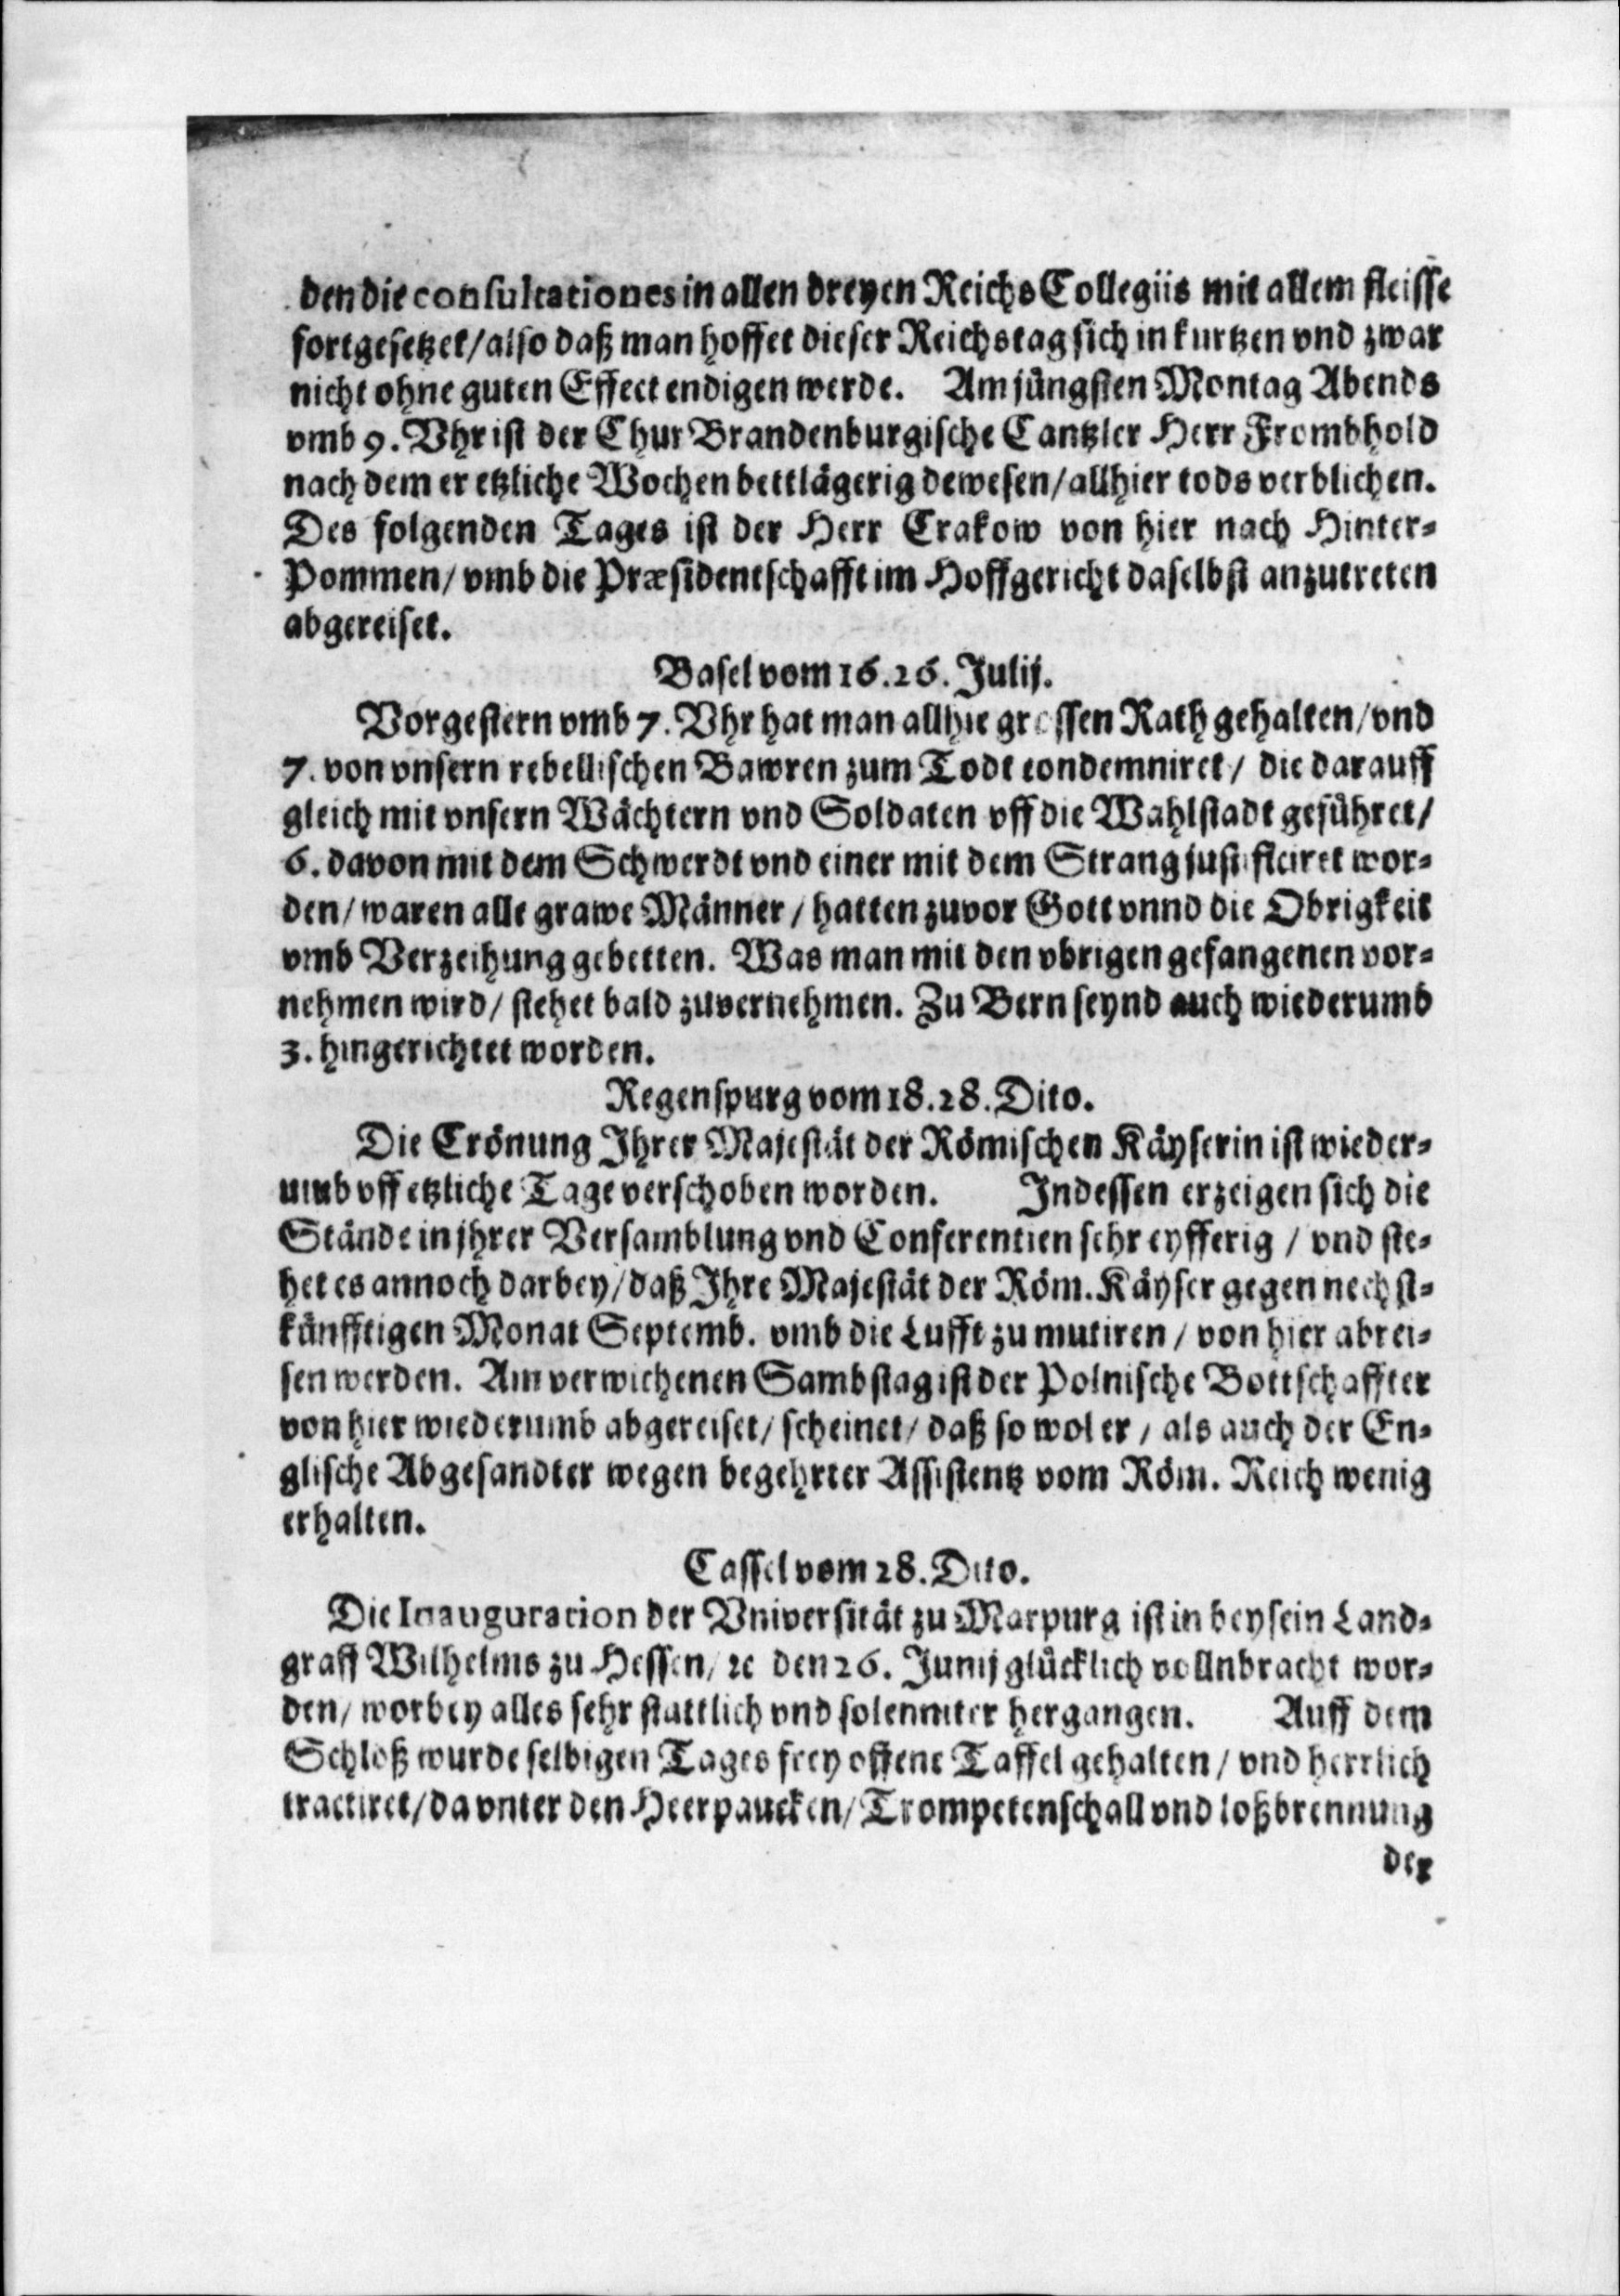 den die consultationes in allen dreyen Reichs Collegiis mit allem fleisse
fortgesetzet/ also daß man hoffet dieser Reichstag sich in kurtzen vnd zwar
nicht ohne guten Effect endigen werde. Am jüngsten Montag Abends
vmb 9. Vhr ist der Chur Brandenburgische Cantzler Herr Frombhold
nach dem er etzliche Wochen bettlägerig dewesen/ allhier tods verblichen.
Des folgenden Tages ist der Herr Crakow von hier nach Hinter-
Pommen/ vmb die Præsidentschafft im Hoffgericht daselbst anzutreten
abgereiset.
Basel vom 16.26. Julij.
Vorgestern vmb 7. Vhr hat man allhie grossen Rath gehalten/ vnd
7. von vnsern rebellischen Bawren zum Todt condemniret/ die darauff
gleich mit vnsern Wächtern vnd Soldaten vff die Wahlstadt geführet/
6. davon mit dem Schwerdt vnd einer mit dem Strang justificiret wor-
den/ waren alle grawe Männer/ hatten zuvor Gott vnnd die Obrigkeit
vmb Verzeihung gebetten. Was man mit den vbrigen gefangenen vor-
nehmen wird/ stehet bald zuvernehmen. Zu Bern seynd auch wiederumb
3. hingerichtet worden.
Regenspurg vom 18.28. Dito.
Die Crönung Ihrer Majestät der Römischen Käyserin ist wieder-
umb vff etzliche Tage verschoben worden. Indessen erzeigen sich die
Stände in jhrer Versamblung vnd Conferentien sehr eyfferig/ vnd ste-
het es annoch darbey/ daß Ihre Majestät der Röm. Käyser gegen nechst-
künfftigen Monat Septemb. vmb die Lufft zu mutiren/ von hier abrei-
sen werden. Am verwichenen Sambstag ist der Polnische Bottschaffter
von hier wiederumb abgereiset/ scheinet/ daß so wol er/ als auch der En-
glische Abgesandter wegen begehrter Assistentz vom Röm. Reich wenig
erhalten.
Cassel vom 28. Dito.
Die Inauguration der Vniversität zu Marpurg ist in beysein Land-
graff Wilhelms zu Hessen/ ꝛc den 26. Junij glücklich vollnbracht wor-
den/ worbey alles sehr stattlich vnd solenniter hergangen. Auff dem
Schloß wurde selbigen Tages frey offene Taffel gehalten/ vnd herrlich
tractiret/ da vnter den Heerpaucken/ Trompetenschall vnd loßbrennung
der